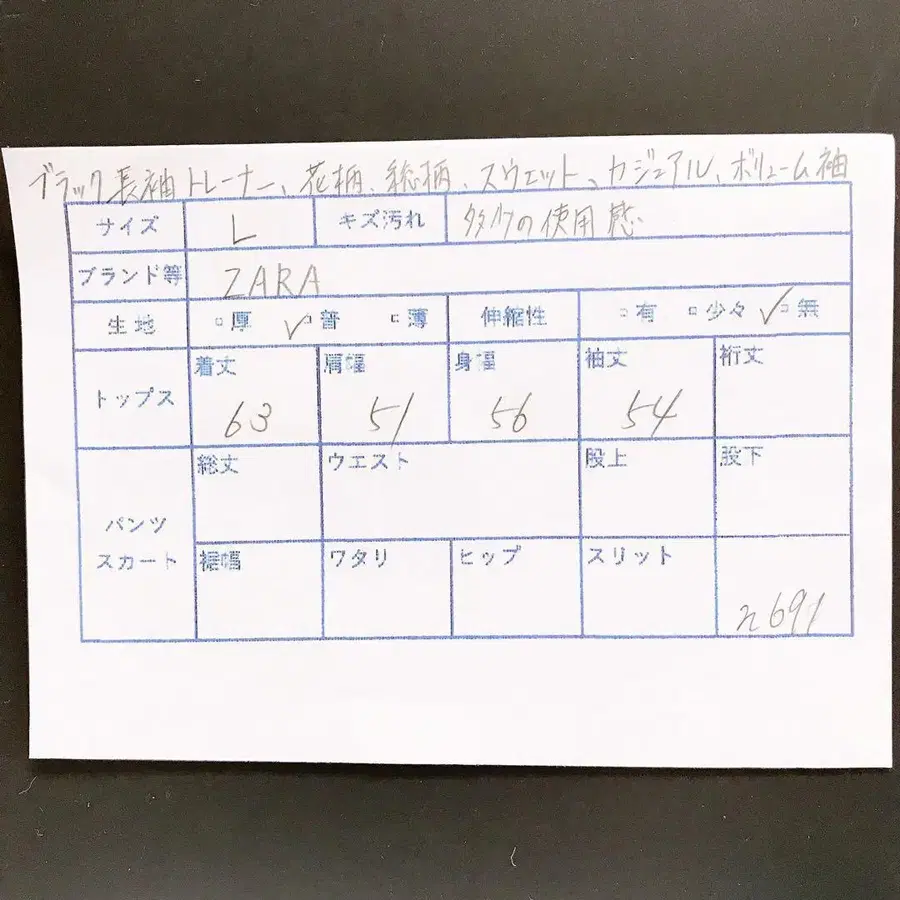 ブラック長袖トレーナー、花柄、総柄、スウェット、カジュアル、ボリューム袖
サイズ L キズ汚れ 多少の使用感
ブランド等 ZARA
生地 □厚 ✓□普 □薄 伸縮性 □有 □少々 ✓□無
トップス 着丈 63 肩幅 51 身幅 56 袖丈 54 裄丈
パンツ スカート
総丈 ウエスト 股上 股下
裾幅 ワタリ ヒップ スリット
n691